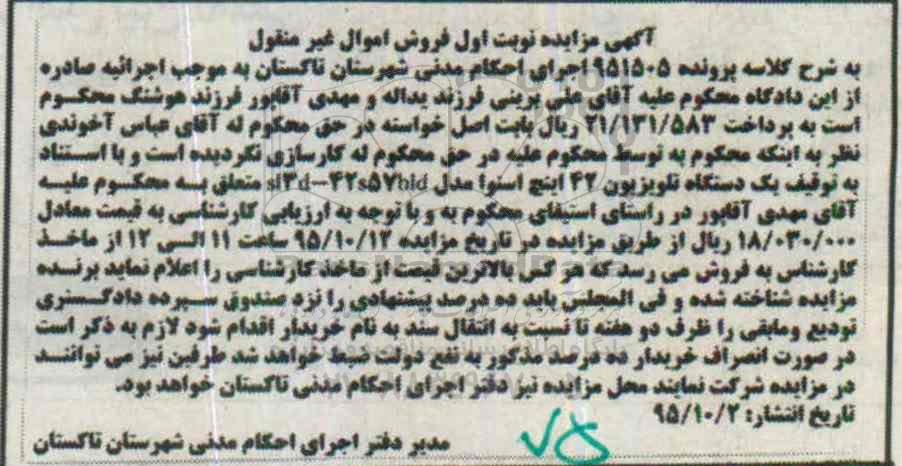 آگهی مزایده نوبت اول فروش اموال غیر منقول
به شرح کلاسه پرونده ۹۵۱۵۰۵ اجرای احکام مدنی شهرستان تاکستان به موجب اجرائیه صادره
از این دادگاه محکوم علیه آقای علی پرینی فرزند یداله و مهدی آقاپور فرزند هوشنگ محکوم
است به پرداخت ۲۱/۱۳۱/۵۸۳ ریال بابت اصل خواسته در حق محکوم له آقای عباس آخوندی
نظر به اینکه محکوم به توسط محکوم علیه در حق محکوم له کارسازی نگردیده است و با استناد
به توقیف یک دستگاه تلویزیون ۴۲ اینچ اسنوا مدل sl۳d-۴۲s۵۷bld متعلق به محکوم علیه
آقای مهدی آقاپور در راستای استیفای محکوم به و با توجه به ارزیابی کارشناسی به قیمت معادل
۱۸/۰۳۰/۰۰۰ ریال از طریق مزایده در تاریخ مزایده ۹۵/۱۰/۱۲ ساعت ۱۱ الی ۱۲ از ماخذ
کارشناس به فروش می رسد که هر کس بالاترین قیمت از ماخذ کارشناسی را اعلام نماید برنده
مزایده شناخته شده و فی المجلس باید ده درصد پیشنهادی را نزد صندوق سپرده دادگستری
تودیع ومابقی را ظرف دو هفته تا نسبت به انتقال سند به نام خریدار اقدام شود لازم به ذکر است
در صورت انصراف خریدار ده درصد مذکور به نفع دولت ضبط خواهد شد طرفین نیز می توانند
در مزایده شرکت نمایند محل مزایده نیز دفتر اجرای احکام مدنی تاکستان خواهد بود.
تاریخ انتشار: ۹۵/۱۰/۲
مدیر دفتر اجرای احکام مدنی شهرستان تاکستان